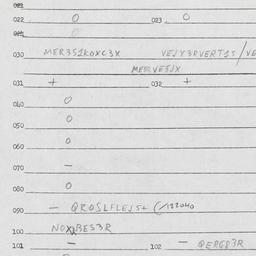 021
022 O 023 O
024 O
030 MER3S1KOXC3X VEJX3RVERT1S/VE
MERVESJX
031 + 032 +
040 O
050 O
060 O
070 –
080 O
090 – QROSLFLEJS+ (/122040
100 NOXBES3R
101 – 102 – QERG83R